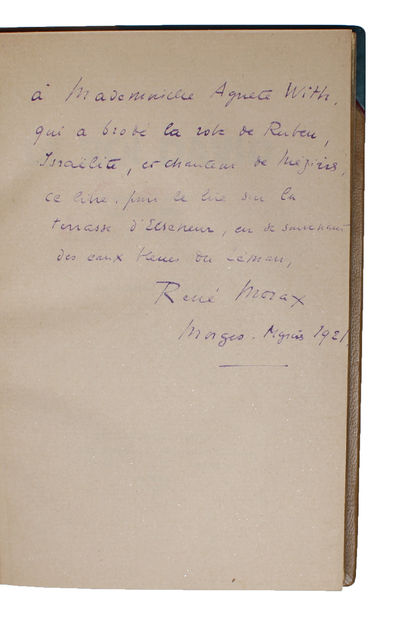 à Mademoiselle Agnete With,
qui a brodé la robe de Ruben,
Israëlite, et chanteur de Mézières,
ce livre, pour le lire sur la
terrasse d'Elseneur, en se souvenant
des eaux bleues du Léman,
René Morax
Morges. Mézières 1921